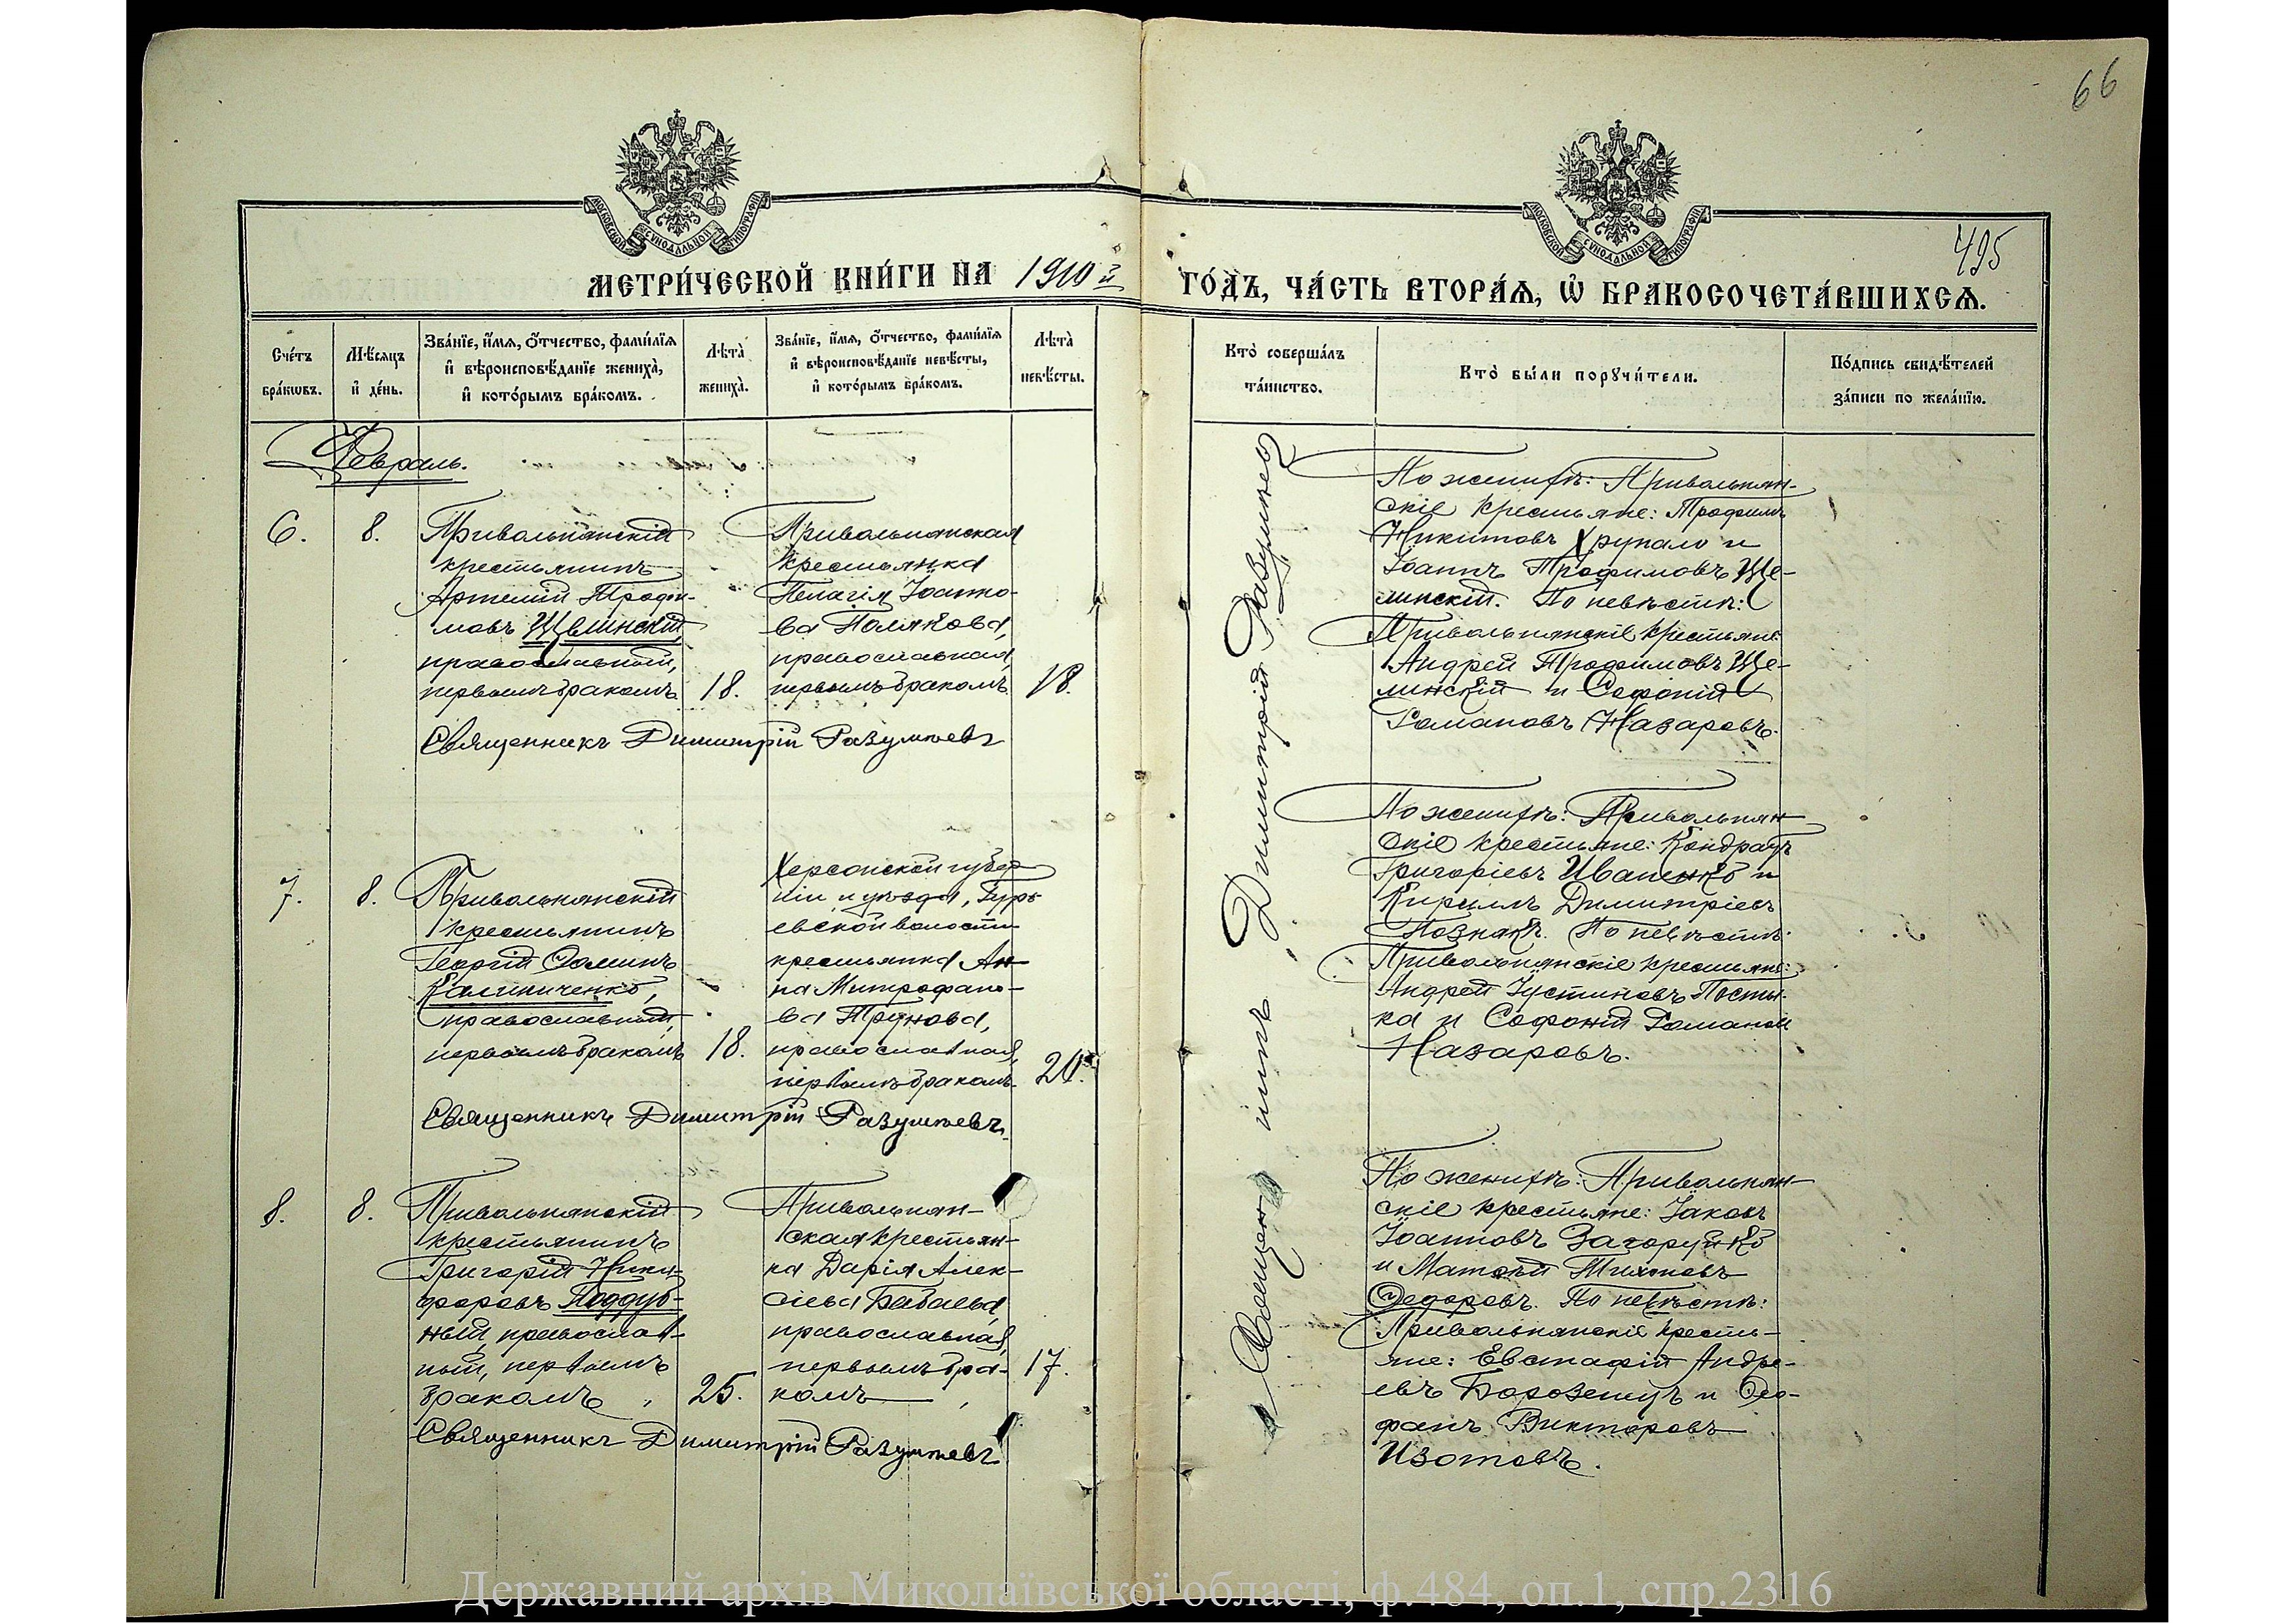 66
495
МОСКОВСКОЙ СѴНОДАЛЬНОЙ ТИПОГРАФІИ
МОСКОВСКОЙ СѴНОДАЛЬНОЙ ТИПОГРАФІИ
МЕТРИ́ЧЕСКОЙ КНИ́ГИ НА 1910й ГО́ДЪ, ЧА́СТЬ ВТОРА́Я, Ѽ БРАКОСОЧЕТА́ВШИХСЯ.
Сче́тъ
бра́кѡвъ.
Мѣ́сяцъ
и҆ де́нь.
Зва́нїе, и҆́мя, ѻ҆́тчество, фами́лїя
и҆ вѣроисповѣ́данїе жениха̀,
и҆ кото́рымъ бра́комъ.
Лѣта̀
жениха̀.
Зва́нїе, и҆́мя, ѻ҆́тчество, фами́лїя
и҆ вѣроисповѣ́данїе невѣ́сты,
и҆ кото́рымъ бра́комъ.
Лѣта̀
невѣ́сты.
Кто̀ соверша́лъ
та́инство.
Кто̀ бы́ли порꙋчи́тели.
По́дпись свидѣ́телей
за́писи по жела́нїю.
Февраль.
6.
8.
Привольнянскій
крестьянинъ
Артемій Трофи-
мовъ Щелинскій,
православный,
первымъ бракомъ
18.
Привольнянская
крестьянка
Пелагія Іоанно-
ва Полякова,
православная,
первымъ бракомъ
18.
Священникъ Димитрій Разумневъ
По женихѣ: Привольнян-
скіе крестьяне: Трофимъ
Никитовъ Хрупало и
Іоаннъ Трофимовъ Ще-
линскій. По невѣстѣ:
Привольнянскіе крестьяне
Андрей Трофимовъ Ще-
линскій и Софоній
Романовъ Назаровъ.
7.
8.
Привольнянскій
крестьянинъ
Георгій Ѳоминъ
Калиниченко,
православный,
первымъ бракомъ
18.
Херсонской губер
ніи и уѣзда, Гурь
евской волости
крестьянка Ан-
на Митрофано-
ва Трунова,
православная,
первымъ бракомъ.
20.
Священникъ Димитрій Разумневъ.
По женихѣ: Привольнян
скіе крестьяне: Кондратъ
Григоріевъ Иваненко и
Кириллъ Димитріевъ
Познакъ. По невѣстѣ:
Привольнянскіе крестьяне:
Андрей Іустиновъ Посты-
ка и Софоній Романовъ
Назаровъ.
8.
8.
Привольнянскій
крестьянинъ
Григорій Ники-
форовъ Поддуб-
ный, православ-
ный, первымъ
бракомъ
25.
Привольнян-
ская крестьян-
ка Дарія Алек-
сіева Бабаева,
православная,
первымъ бра-
комъ
17.
Священникъ Димитрій Разумневъ
По женихѣ: Привольнян-
скіе крестьяне: Іаковъ
Іоанновъ Загоруйко
и Матѳей Тихоновъ
Ѳедоровъ. По невѣстѣ:
Привольнянскіе кресть-
яне: Евстафій Андре-
евъ Борозенецъ и Ѳео-
фанъ Викторовъ
Изотовъ.
Священникъ Димитрій Разумневъ
Державний архів Миколаївської області, ф.484, оп.1, спр.2316